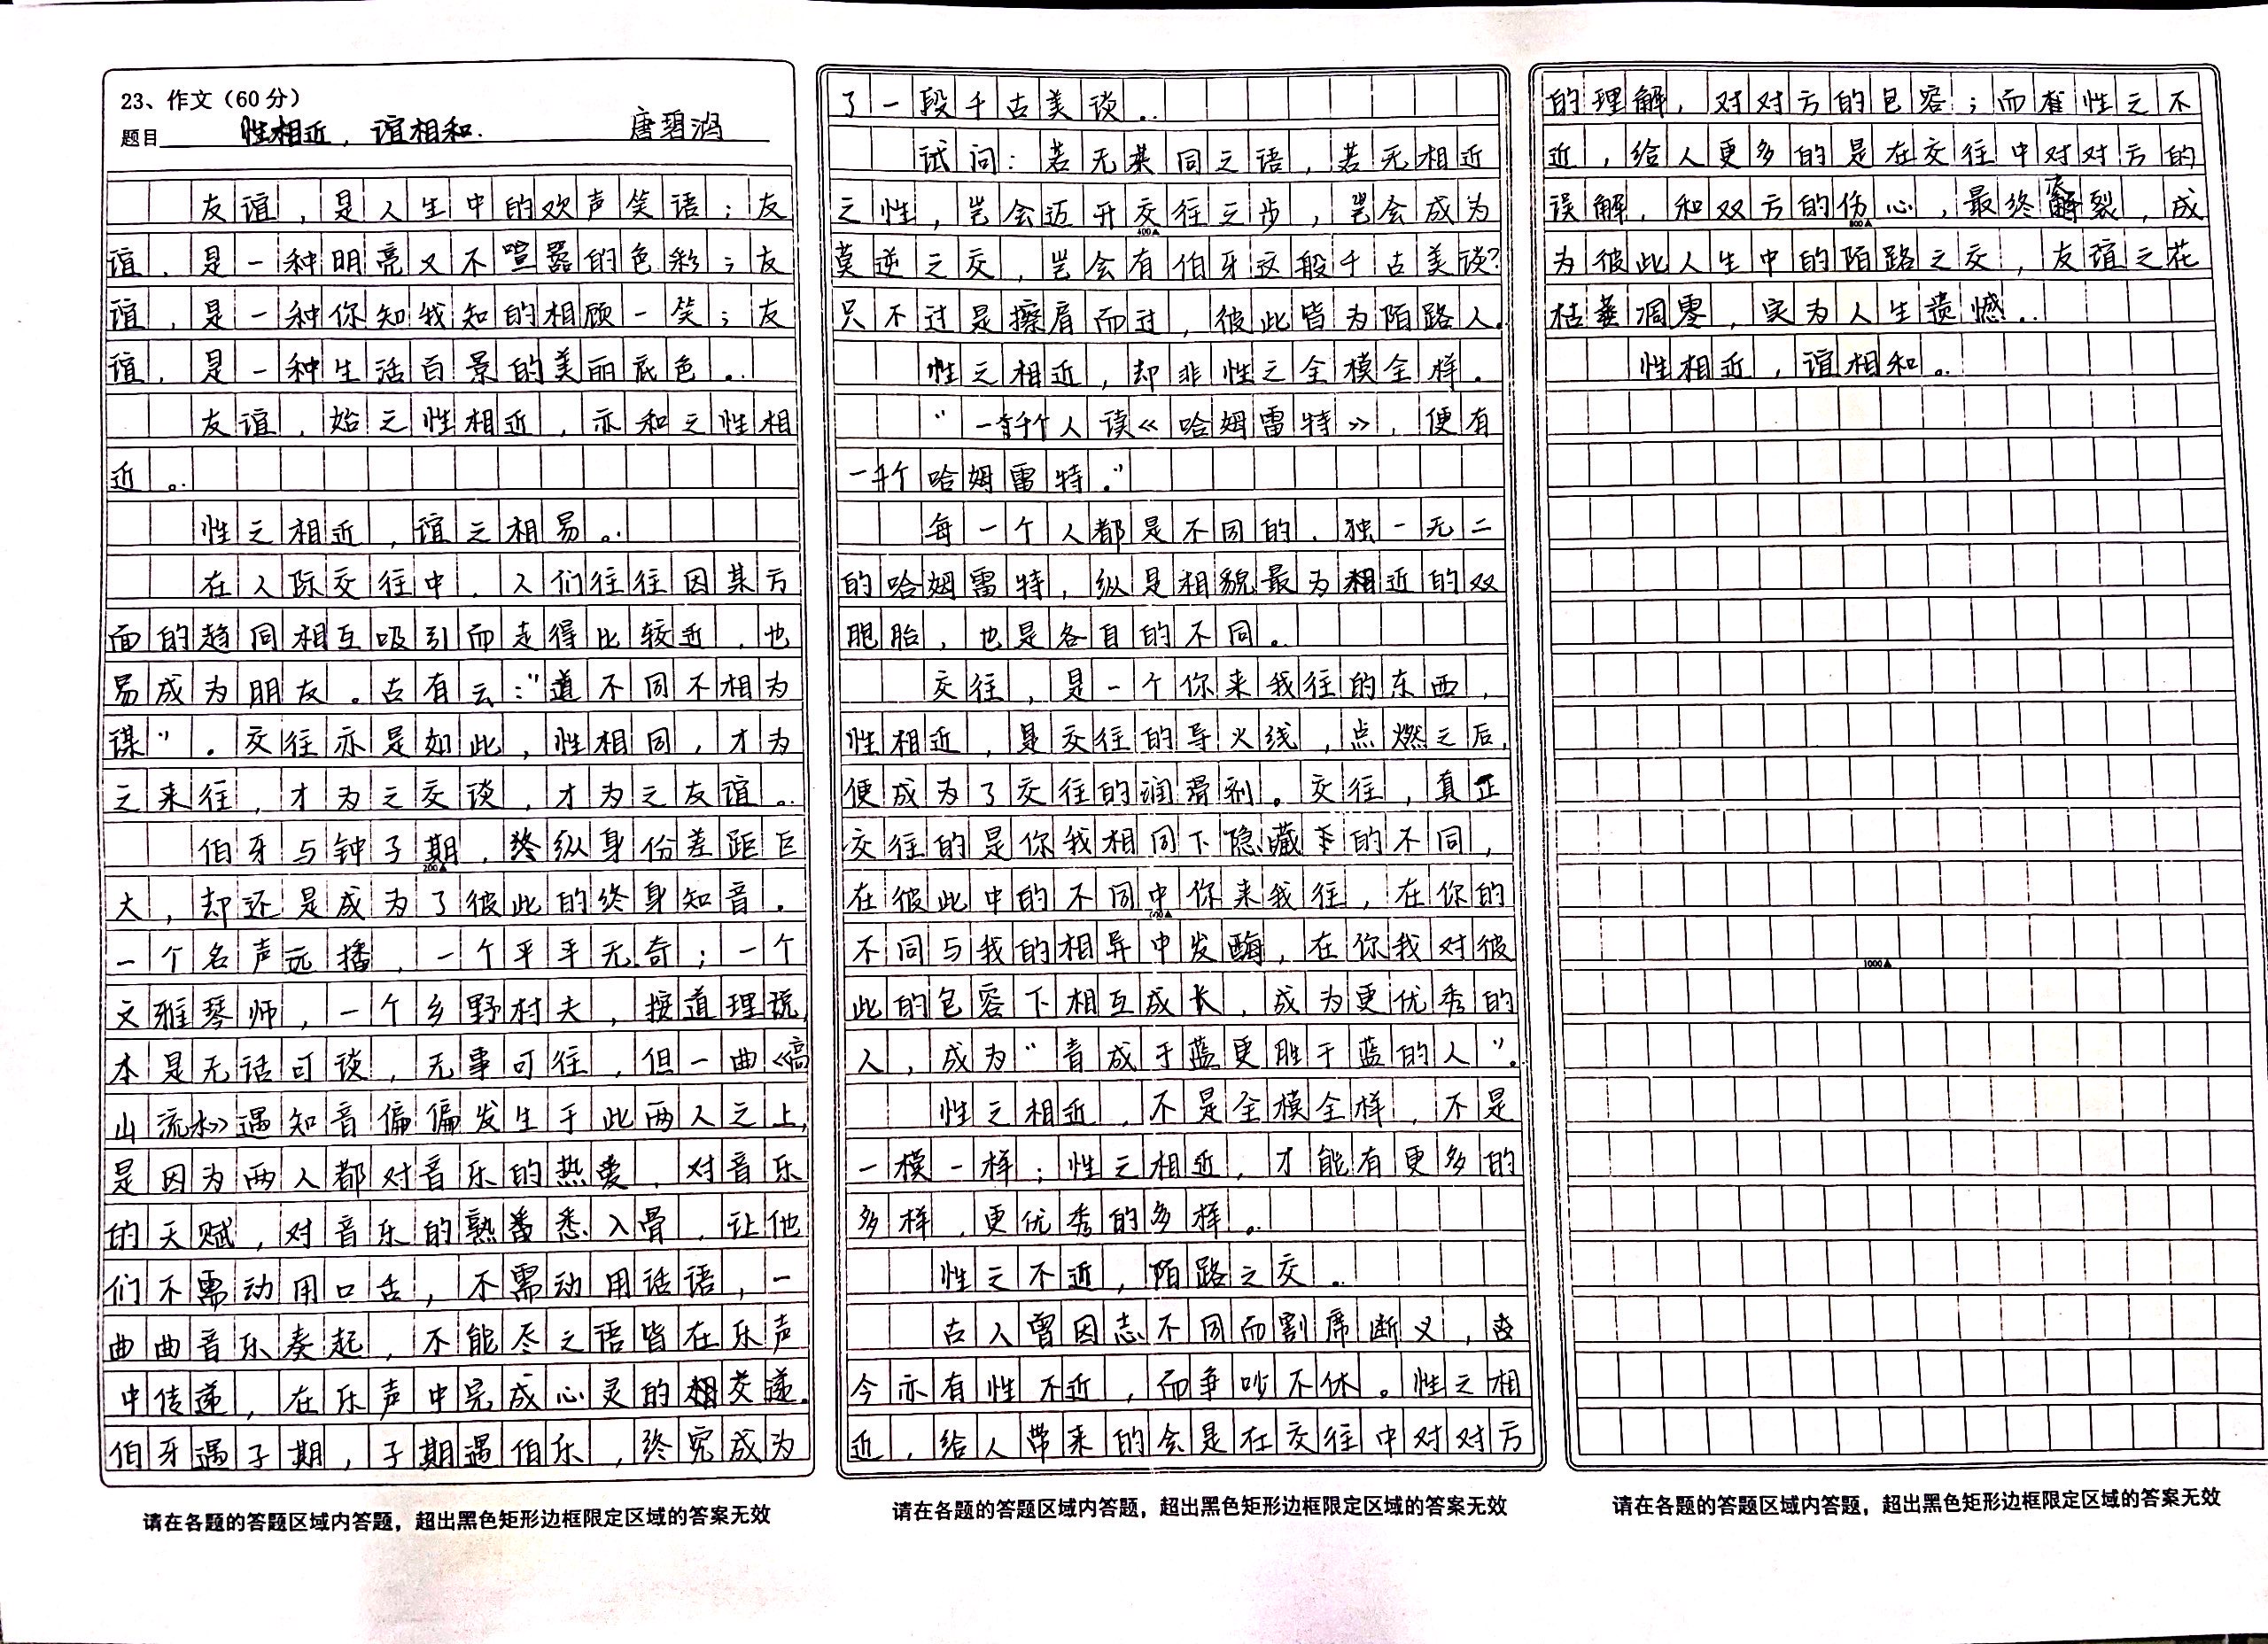 23、作文（60分）
题目 性相近，谊相和. 唐碧鸿
友谊，是人生中的欢声笑语；友
谊，是一种明亮又不喧嚣的色彩；友
谊，是一种你知我知的相顾一笑；友
谊，是一种生活百景的美丽底色。
友谊，始之性相近，亦和之性相
近。
性之相近，谊之相易。
在人际交往中，人们往往因某方
面的趋同相互吸引而走得比较近，也
易成为朋友。古有云：“道不同不相为
谋”。交往亦是如此，性相同，才为
之来往，才为之交谈，才为之友谊。
伯牙与钟子期，终纵身份差距巨
200▲
大，却还是成为了彼此的终身知音。
一个名声远播，一个平平无奇；一个
文雅琴师，一个乡野村夫，按道理说，
本是无话可谈，无事可往，但一曲《高
山流水》遇知音偏偏发生于此两人之上，
是因为两人都对音乐的热爱，对音乐
的天赋，对音乐的熟悉入骨，让他
们不需动用口舌，不需动用话语，一
曲曲音乐奏起，不能尽之语皆在乐声
中传递，在乐声中完成心灵的相交递。
伯牙遇子期，子期遇伯乐，终究成为
请在各题的答题区域内答题，超出黑色矩形边框限定区域的答案无效
了一段千古美谈。
试问：若无共同之语，若无相近
之性，岂会迈开交往之步，岂会成为
400▲
莫逆之交，岂会有伯牙这般千古美谈？
只不过是擦肩而过，彼此皆为陌路人。
性之相近，却非性之全模全样。
“一千个人读《哈姆雷特》，便有
一千个哈姆雷特。”
每一个人都是不同的，独一无二
的哈姆雷特，纵是相貌最为相近的双
胞胎，也是各自的不同。
交往，是一个你来我往的东西，
性相近，是交往的导火线，点燃之后，
便成为了交往的润滑剂。交往，真正
交往的是你我相同下隐藏的不同，
在彼此中的不同中你来我往，在你的
600▲
不同与我的相异中发酶，在你我对彼
此的包容下相互成长，成为更优秀的
人，成为“青成于蓝更胜于蓝的人”。
性之相近，不是全模全样，不是
一模一样；性之相近，才能有更多的
多样，更优秀的多样。
性之不近，陌路之交。
古人曾因志不同而割席断义，
今亦有性不近，而争吵不休。性之相
近，给人带来的会是在交往中对对方
请在各题的答题区域内答题，超出黑色矩形边框限定区域的答案无效
的理解，对对方的包容；而性之不
近，给人更多的是在交往中对对方的
误解，和双方的伤心，最终破裂，成
800▲
为彼此人生中的陌路之交，友谊之花
枯萎凋零，实为人生遗憾。
性相近，谊相和。
1000▲
请在各题的答题区域内答题，超出黑色矩形边框限定区域的答案无效